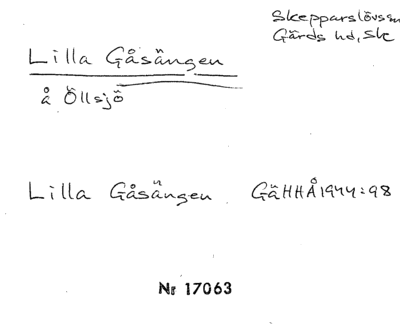 Skepparslövssn
Gärds hd, Sk
Lilla Gåsängen
å Öllsjö
Lilla Gåsängen GäHHÅ1944:98
Nr 17063